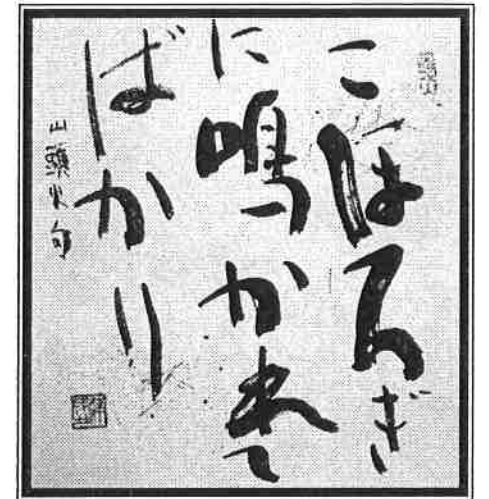 こほろぎ
に鳴かれて
ばかり
山頭火句